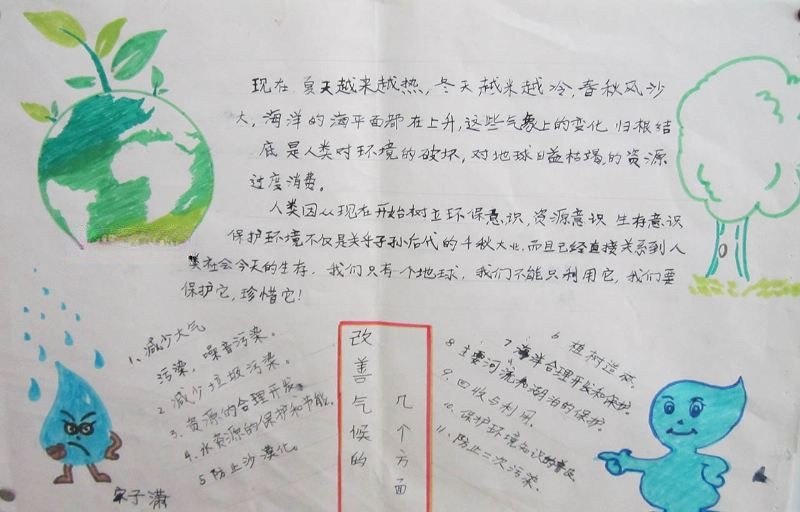 现在 夏天越来越热,冬天越来越冷,春秋风沙
大,海洋的海平面都在上升,这些气象上的变化 归根结
底是人类对环境的破坏,对地球日益枯竭,的资源
过度消费。
人类因从现在开始树立环保意识,资源意识 生存意识
保护环境不仅是关乎子孙后代的千秋大业,而且已经直接关系到人
类社会今天的生存. 我们只有一个地球, 我们不能只利用它,我们要
保护它,珍惜它!
1、减少大气
污染,噪音污染。
2 减少垃圾污染。
3. 资源的合理开发。
4.水资源的保护和节能.
5防止沙漠化。
改善气候的
几个方面
6 植树造林。
7 海洋合理开发和保护。
8 主要河流和湖泊的保护。
9. 回收与利用.
10. 保护环境知识的普及
11.防止二次污染.
宋子潇